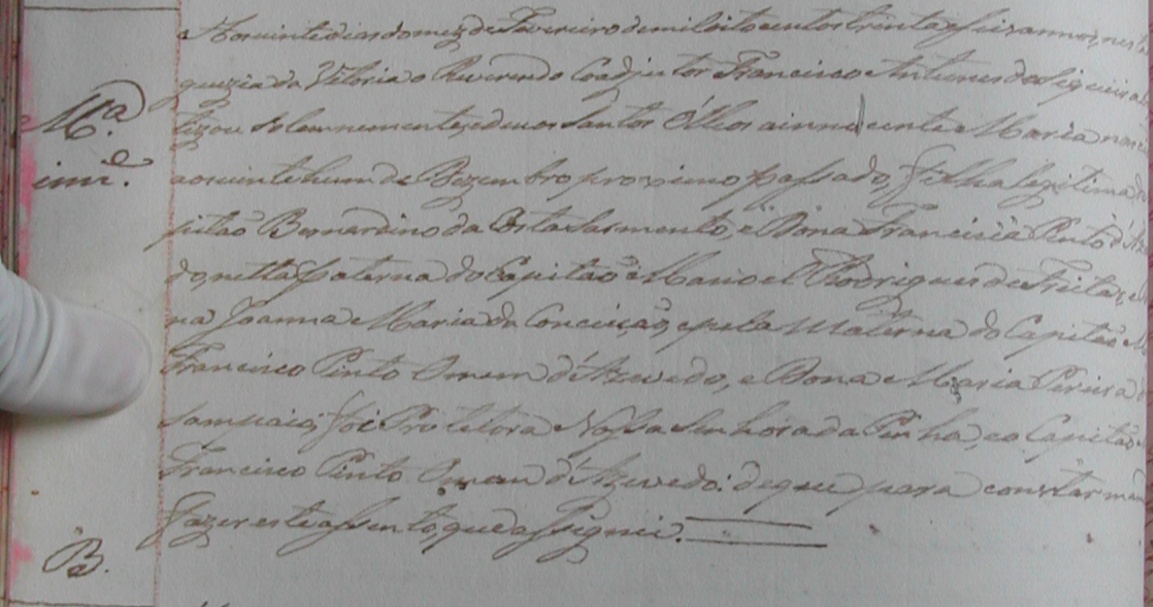 Aos vinte dias do mez de Fevereiro de mil oito centos trinta e seis annos, nesta
guezia da Vitoria o Reverendo Coadjutor Francisco Antunes de Siqueira
Mª tizou solemnemente, e deu os Santos Oleos a innocente Maria nasci
inne. aos vinte hum de Dezembro proximo passado, filha legitima do
pitaõ Bernardino da Costa Sarmento, e Dona Francisca Pinto d'Az
do, netta paterna do Capitaõ Manoel Rodrigues de Freitas, e
na Joanna Maria da Conceiçaõ, e pela Materna do Capitaõ
Francisco Pinto Omem d'Azevedo, e Dona Maria Pereira
Sampaio; foi Protetora Nossa Senhora da Penha, e o Capitaõ
Francisco Pinto Omem d'Azevedo: de que para constar man
fazer este assento, que assignei.
B.